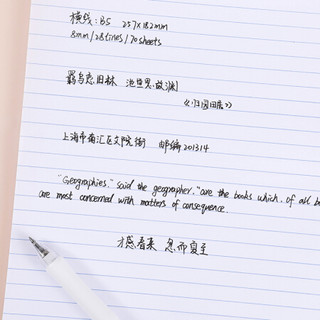 横线：B5 257×182mm
8mm/28lines/70sheets
羁鸟恋旧林 池鱼思故渊
《归园田居》
上海市南汇区文院街 邮编201314
"Geographies," said the geographer, "are the books which, of all b
are most concerned with matters of consequence.
才感春来 忽而夏至